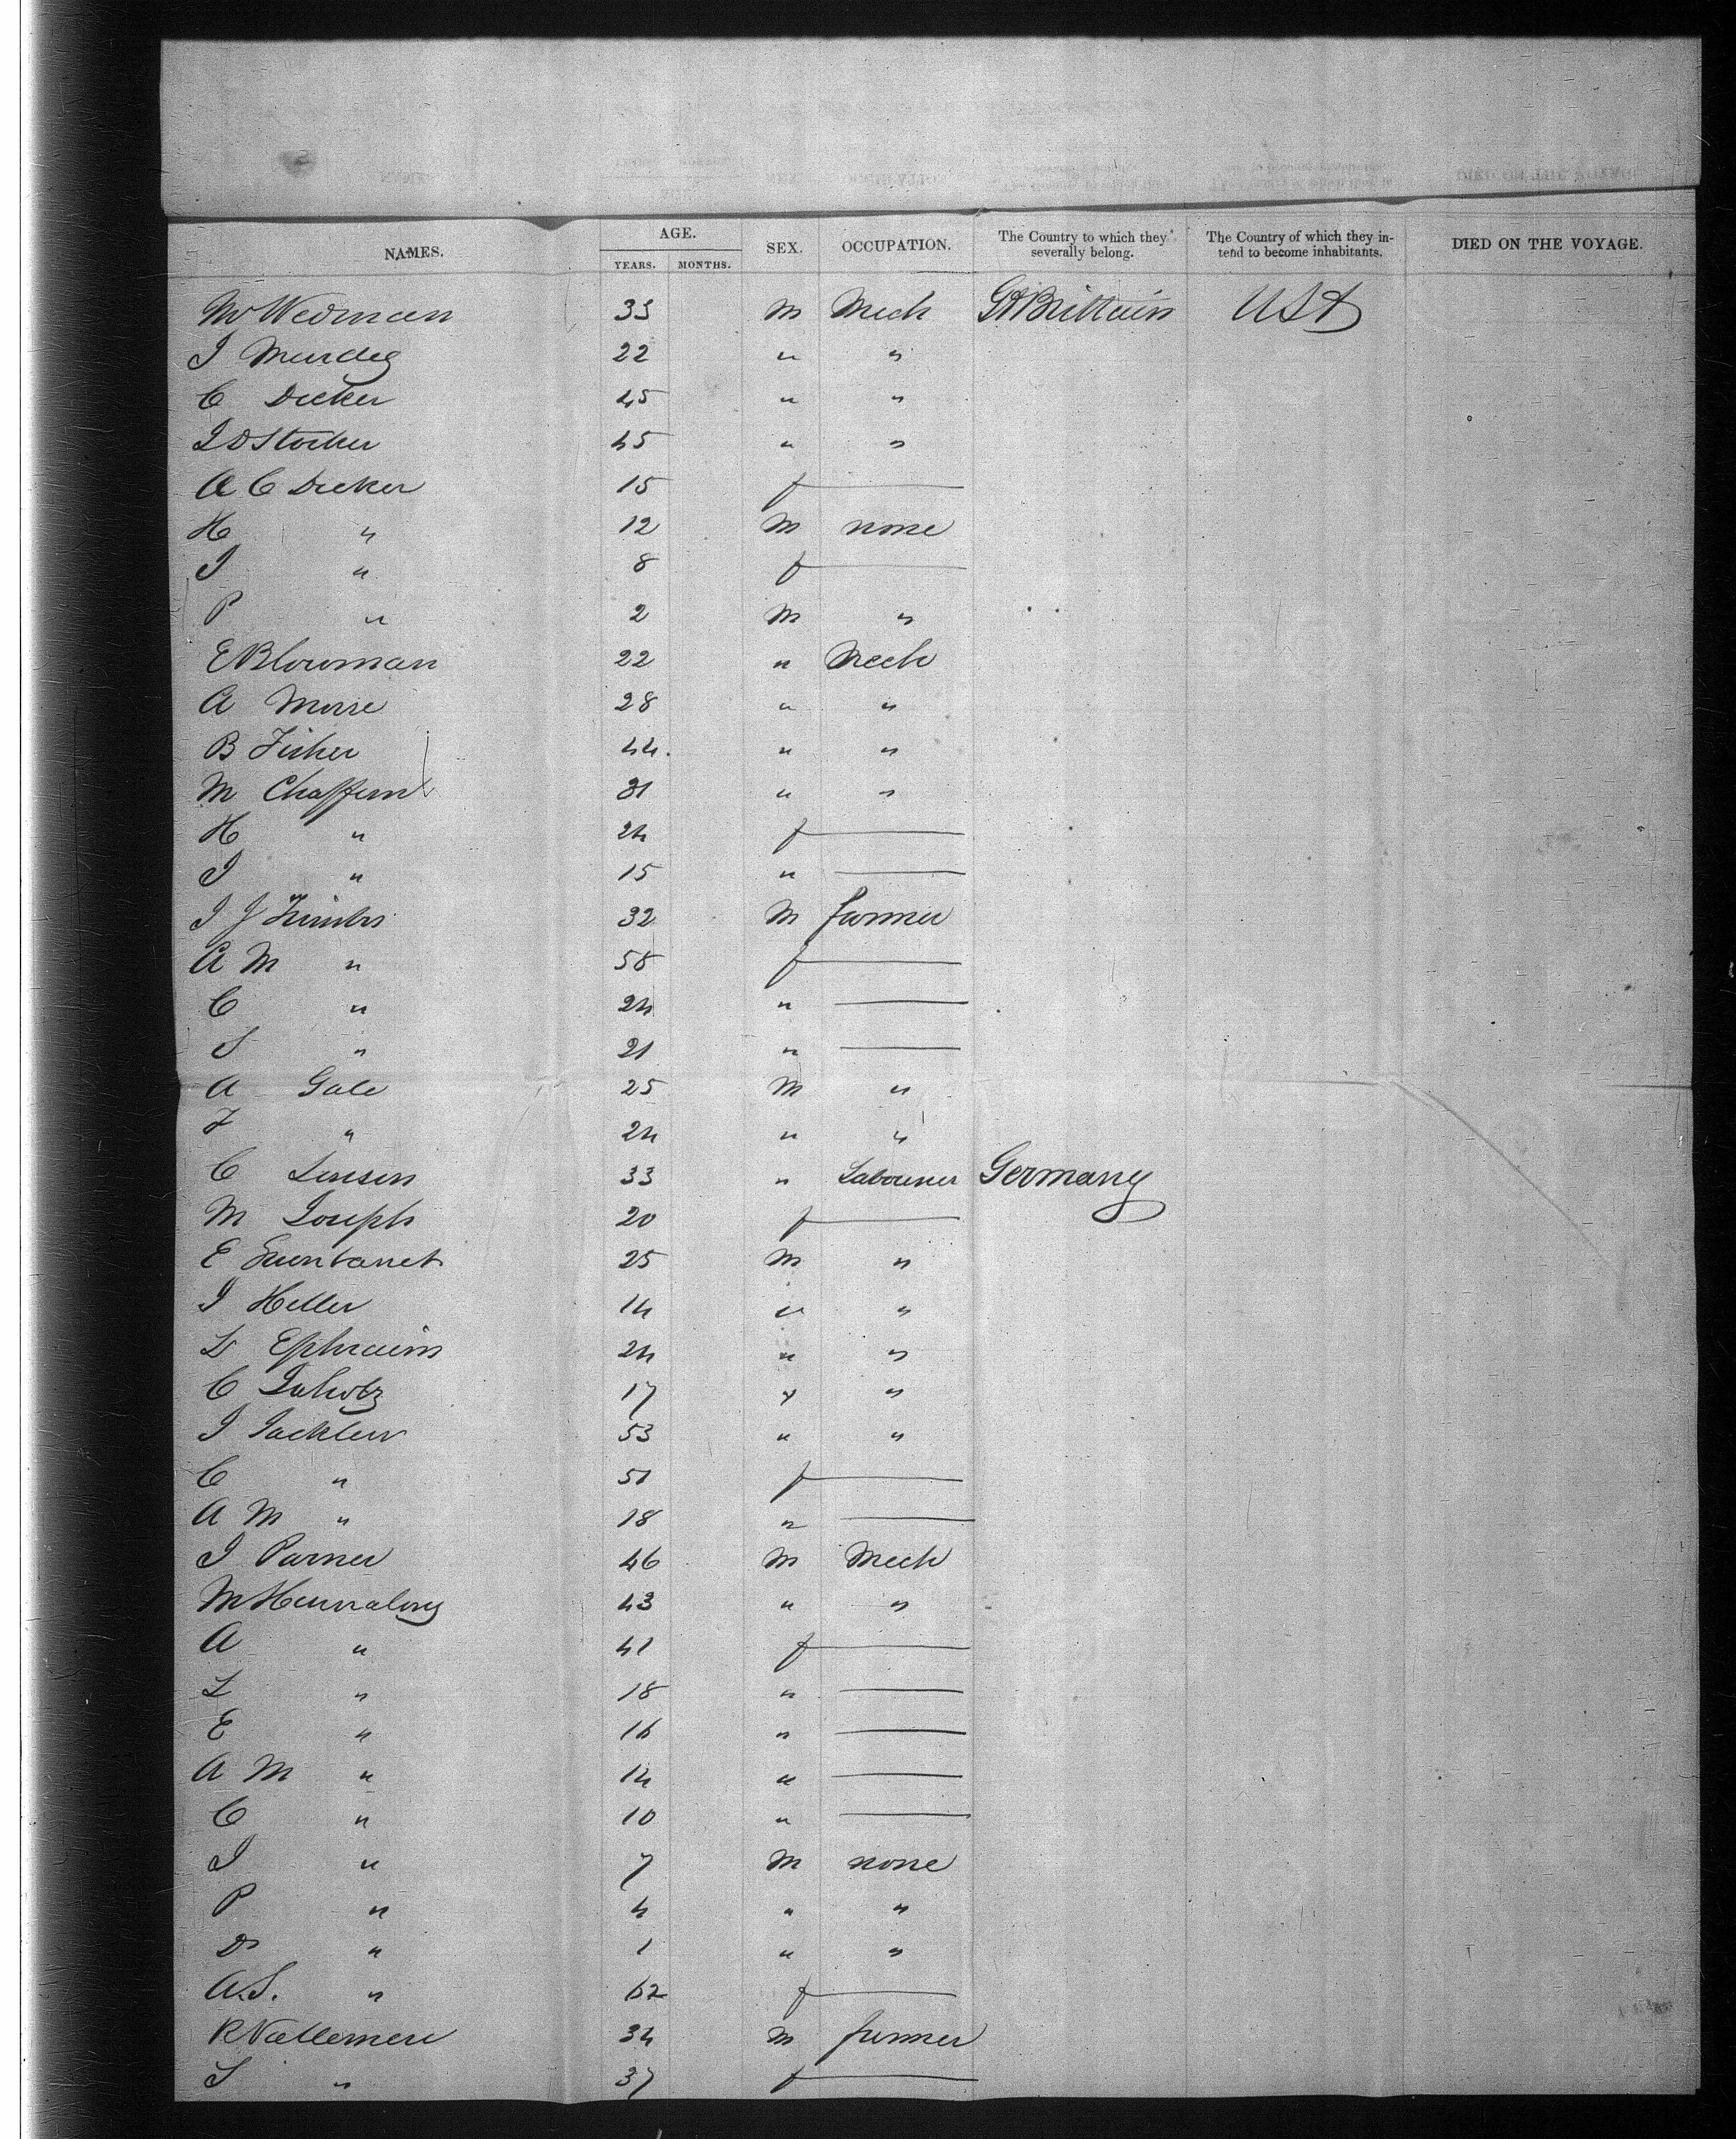 NAMES. AGE. YEARS. MONTHS. SEX. OCCUPATION. The Country to which they severally belong. The Country of which they intend to become inhabitants. DIED ON THE VOYAGE.
M Wedman 33 M Mech Gt Brittain USA
J 22 " "
C Decker 45 " "
J D Stocker 45 " "
A C Decker 15 f —
H " 12 M none
J " 8 f —
P " 2 M "
E Blowman 22 " Mech
A Morse 28 " "
B Fisher 44. " "
M 31 " "
H " 24 f —
J " 15 " —
J J 32 M farmer
A M " 58 f —
C " 24 " —
S " 21 " —
A Gale 25 M "
F " 24 " "
C Jensen 33 " Labourer Germany
M Joseph 20 f —
E 25 M "
J Heller 14 " "
L Ephraim 24 " "
C 17 " "
J 53 " "
C " 51 f —
A M " 18 " —
J 46 M Mech
M 43 " "
A " 41 f —
L " 18 " —
E " 16 " —
A M " 14 " —
C " 10 " —
J " 7 M none
P " 4 " "
D " 1 " "
A.S. " 62 f —
R 34 M farmer
S " 37 f —